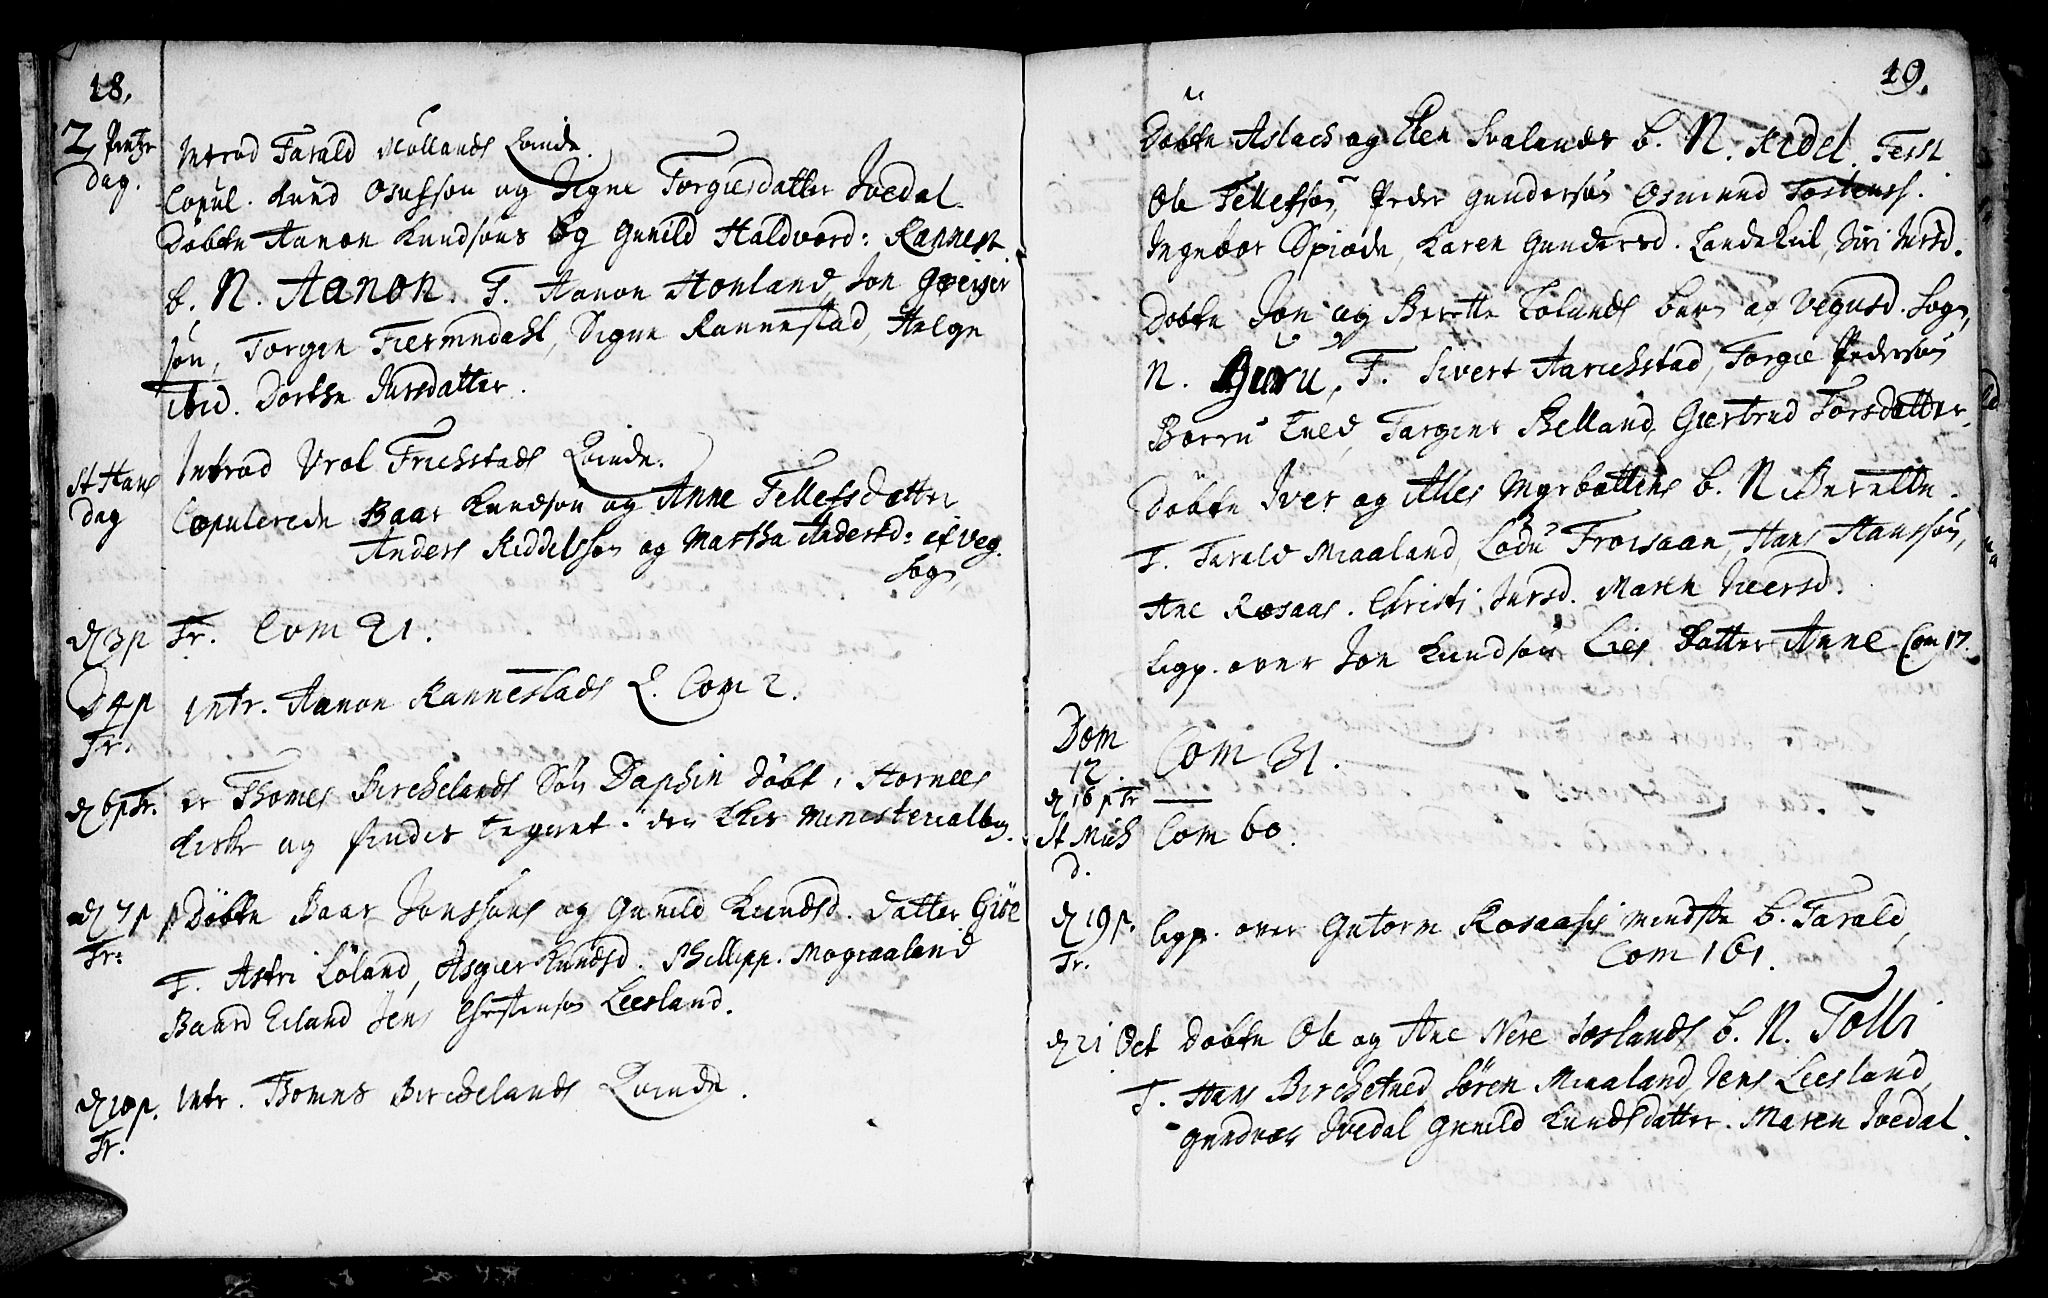 18.
2 Pintze Introd Tarald Møllands Qvinde.
dag. Copul. Knud Osufsøn og Signe Torgiesdatter Ivedal.
Døbte Aanon Knudsøns og Gunild Haldvord: Rannest
b. N. Aanon. F. Aanon Honland, Jon Gregers
søn, Torgen Tiermendahl, Signe Rannestad, Helge
ibid. Dorthe Iversdatter.
St Hans Introd Vrol Frichstads Qvinde.
dag Copulerede Baar Knudsøn og Anne Tellefsdatter
Anders Kiddelsøn og Martha Andersd: af Veg.
sogn,
d 3 p Tr. Com 21.
D 4 p Intr. Aanon Rannestads Q. Com 2.
Tr.
d 6 p Tr. er Thomes Birchelands Søn Daphin døbt i Hornees
Kirke og findes tegnet i den Kkes Ministerialbog.
d 7 p Døbte Baar Jonssøns og Gunild Knudsd. datter Giøe
Tr: F. Astri Løland, Asgier Knudsd. Phillipp. Mograaland
Baard Eiland Jens Christensøn Leesland.
d 10 p. Intr. Thomes Birchelands Qvinde.
Tr.
19.
Døbte Aslach og Elen Svalands b. N. Kidel. Test
Ole Tellefsøn, Peder Gundersøn Osmund Tostens.
Ingebor Spiøde, Karen Gundersd. Landekiil, Siri Iversd.
Døbte Jon og Berette Tolands barn af Vegusd. Sogn,
N. Guru, F. Sivert Aarichstad, Torgie Pedersøn
Borru Tved, Targier Kelland, Giertrud Torsdatter.
Døbte Iver og Alles Myrbottens b. N. Berette.
F. Tarald Miaaland, Lodu Froisaan, Hans Hanssøn,
Ane Rosaas. Christi Iversd. Maren Iversd.
Ligp. over Jon Knudsøn Lies Datter Anne Com 17.
Dom
12. Com 31.
d 16 p Tr —
St Mich Com 60.
d.
d 19 p. Ligp. over Gutorm Rosaasis mindste b. Tarald,
Tr. Com 161.
d 21 Oct Døbte Ole og Ane Nere Joslands b. N. Tolli
F. Hans Birchetved, Søren Miaaland, Jens Leesland,
Gundvor Ivedal Gunild Knudsdatter. Maren Ivedal.